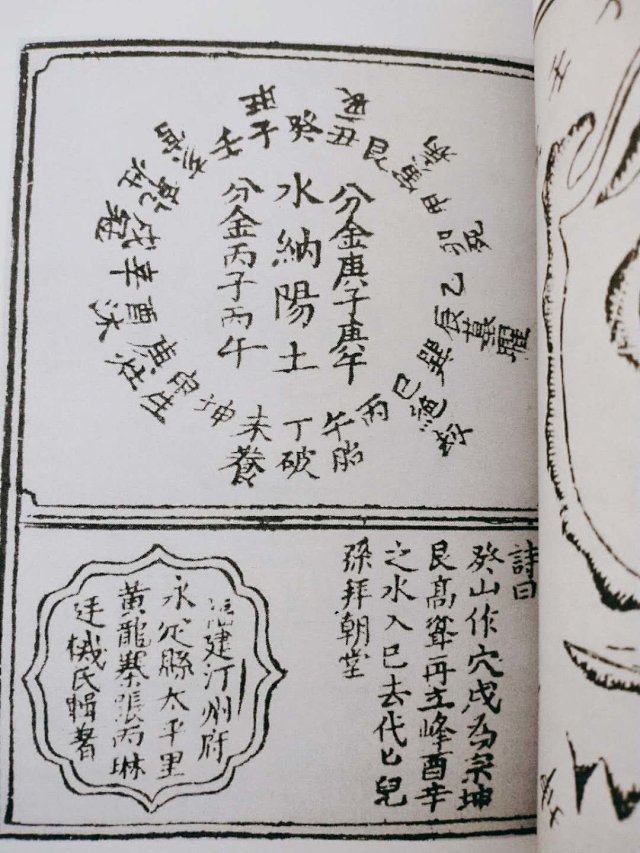 分金庚子庚午
水納陽土
分金丙子丙午
壬子癸丑艮寅甲卯乙辰巽巳丙午丁未坤申庚酉辛戌乾
旺
病
死
墓曜
絕
胎
破
養
生
沐
冠
詩曰
癸山作穴戌為宗坤
艮高聳再立峰酉辛
之水入巳去代匕兒
孫拜朝堂
福建汀州府
永定縣太平里
黃龍寨張丙琳
廷機氏輯著